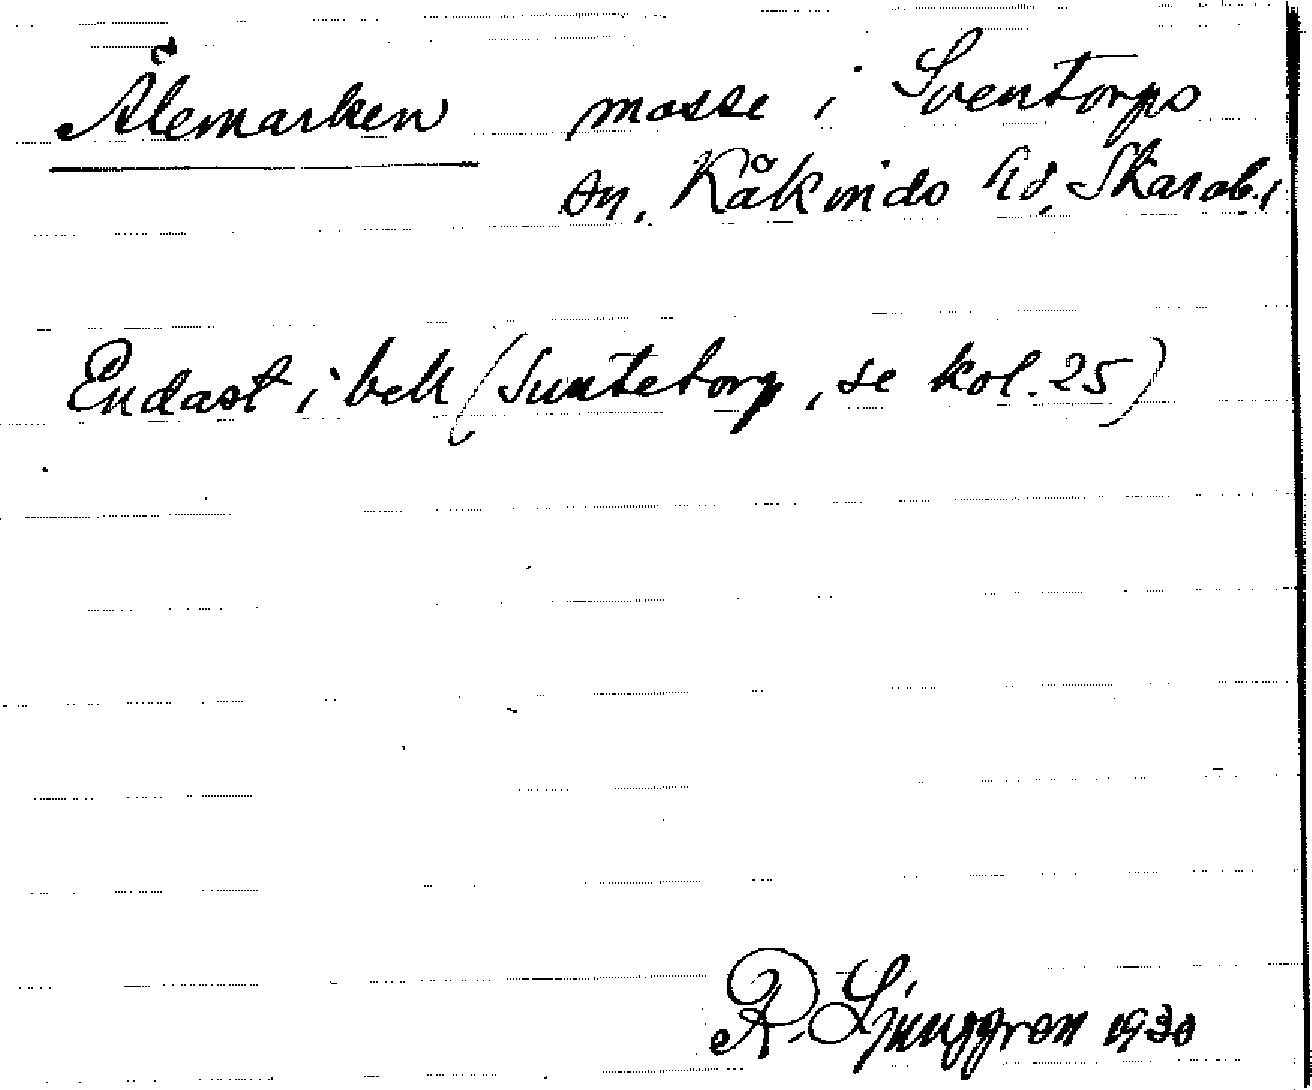 Ålemarken mosse i Sventorps
sn, Kåkinds hd, Skarab. l
Endast i bek (Suntetorp, se kol. 25)
R. Ljunggren 1930